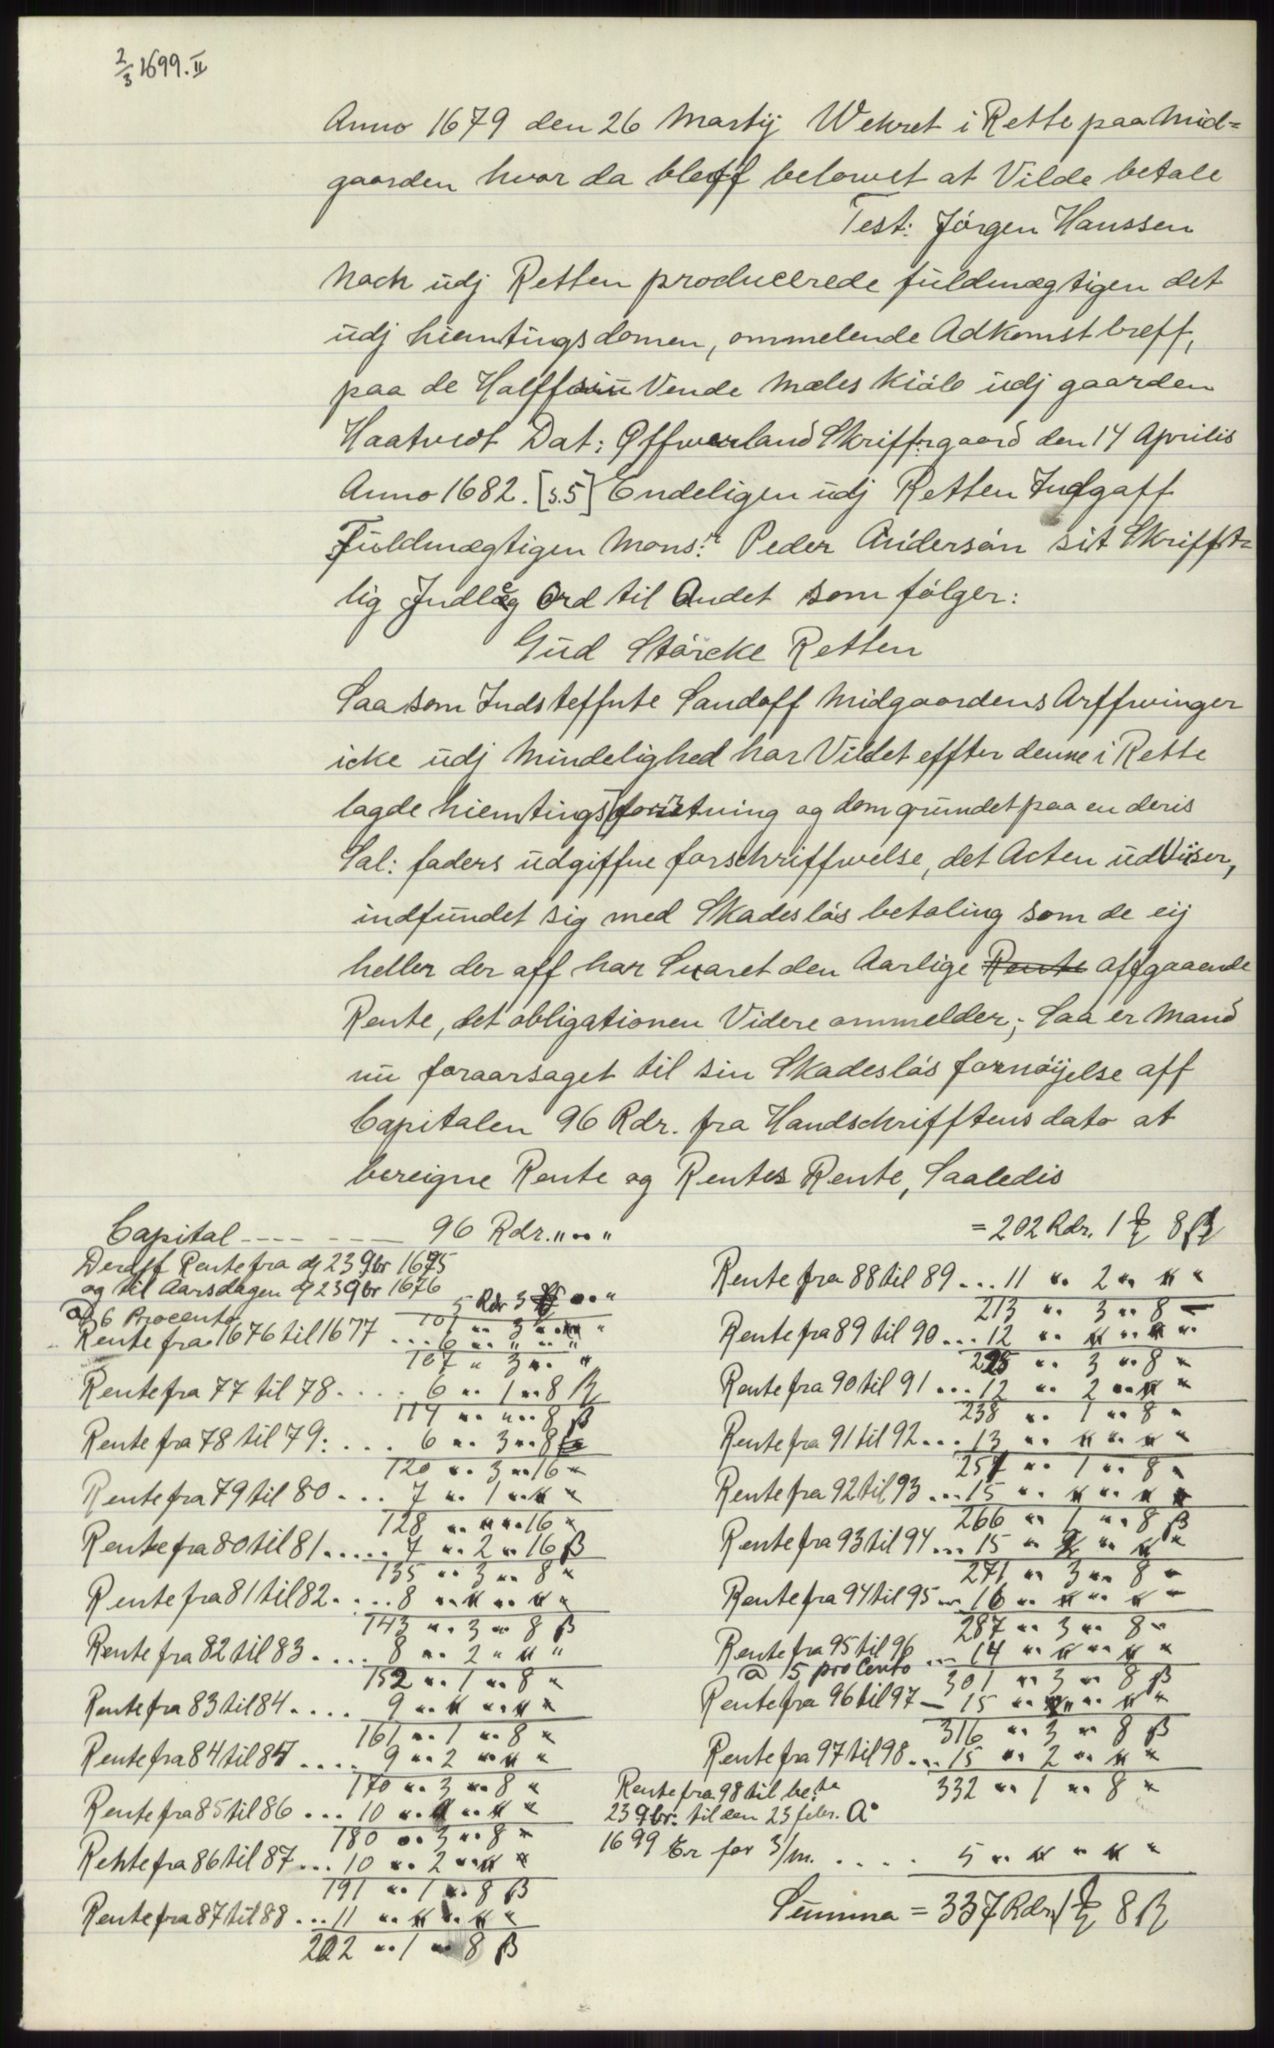 2/3 1699. II
Anno 1679 den 26 Martij Wehret i Rette paa Mid=
gaarden hvor da bleff belowet at Vilde betale
Test: Jörgen Hanssen
Noch udj Retten producerede fuldmægtigen det
udj hiemtings domen, ommelende Adkomst breff,
paa de Halffsiu Vende Mæles Kiöb udj gaarden
Haatvedt Dat: Offwerland Skriffrgaard den 14 Aprilis
Anno 1682. [s.5] Endeligen udj Retten Indgaff
Fuldmægtigen Mons:r Peder Andersøn sit Skrifft=
lig Indlæg Ord til Andet som fölger:
Gud Störcke Retten
Saa som Indsteffnte Sandoff Midgaardens Arffwinger
icke udj Mindelighed har Vildet effter denne i Rette
lagde hiemtings forretning og dom grundet paa en deris
Sal: faders udgiffne forschriffwelse, det Acten udViser,
indfundet sig med Skadeslös betaling som de eij
heller der aff har Suaret den Aarlige Rente affgaaende
Rente, det obligationen Videre ommelder; Saa er Mand
nu foraarsaget til sin Skadeslös fornöijelse aff
Capitalen 96 Rdr. fra Handschrifftens dato at
bereigne Rente og Rentes Rente, Saaledis
Capital ---- ---- 96 Rdr. " " "
Deraff Rente fra dj 23 9br 1675
og til Aarsdagen dj 23 9br 1676
a 6 Procento 5 Rdr 3 " "
101 " 3 " "
Rente fra 1676 til 1677 ... 6 " " "
107 " 3 " "
Rente fra 77 til 78 .... 6 " 1 " 8 ß
114 " " " 8 ß
Rente fra 78 til 79: .... 6 " 3 " 8
120 " 3 " 16 "
Rente fra 79 til 80 .... 7 " 1 " " "
128 " " " 16 "
Rente fra 80 til 81 ..... 7 " 2 " 16 ß
135 " 3 " 8 "
Rente fra 81 til 82 .... 8 " " " " "
143 " 3 " 8 ß
Rente fra 82 til 83 .... 8 " 2 " " "
152 " 1 " 8 "
Rente fra 83 til 84 .... 9 " " " " "
161 " 1 " 8 "
Rente fra 84 til 84 .... 9 " 2 " " "
170 " 3 " 8 "
Rente fra 85 til 86 ... 10 " " " " "
180 " 3 " 8 "
Rente fra 86 til 87 ... 10 " 2 " " "
191 " 1 " 8 ß
Rente fra 87 til 88 ... 11 " " " " "
202 " 1 " 8 ß
= 202 Rdr. 1 8 ß
Rente fra 88 til 89 ... 11 " 2 " " "
213 " 3 " 8 -
Rente fra 89 til 90 ... 12 " " " " "
225 " 3 " 8 "
Rente fra 90 til 91 ... 12 " 2 " " "
238 " 1 " 8 "
Rente fra 91 til 92 ... 13 " " " " "
251 " 1 " 8 "
Rente fra 92 til 93 ... 15 " " " " "
266 " 1 " 8 ß
Rente fra 93 til 94 ... 15 " 2 " " "
271 " 3 " 8 "
Rente fra 94 til 95 ... 16 " " " " "
287 " 3 " 8 "
Rente fra 95 til 96
a 5 pro Cento ... 14 " " " " "
301 " 3 " 8 ß
Rente fra 96 til 97 - 15 " " " " "
316 " 3 " 8 ß
Rente fra 97 til 98 ... 15 " 2 " " "
332 " 1 " 8 "
Rente fra 98 til be:te
23 9br: til den 23 febr. A°
1699 Er for 3/m. .... 5 " " " " "
Summa = 337 Rdr. 1 8 ß